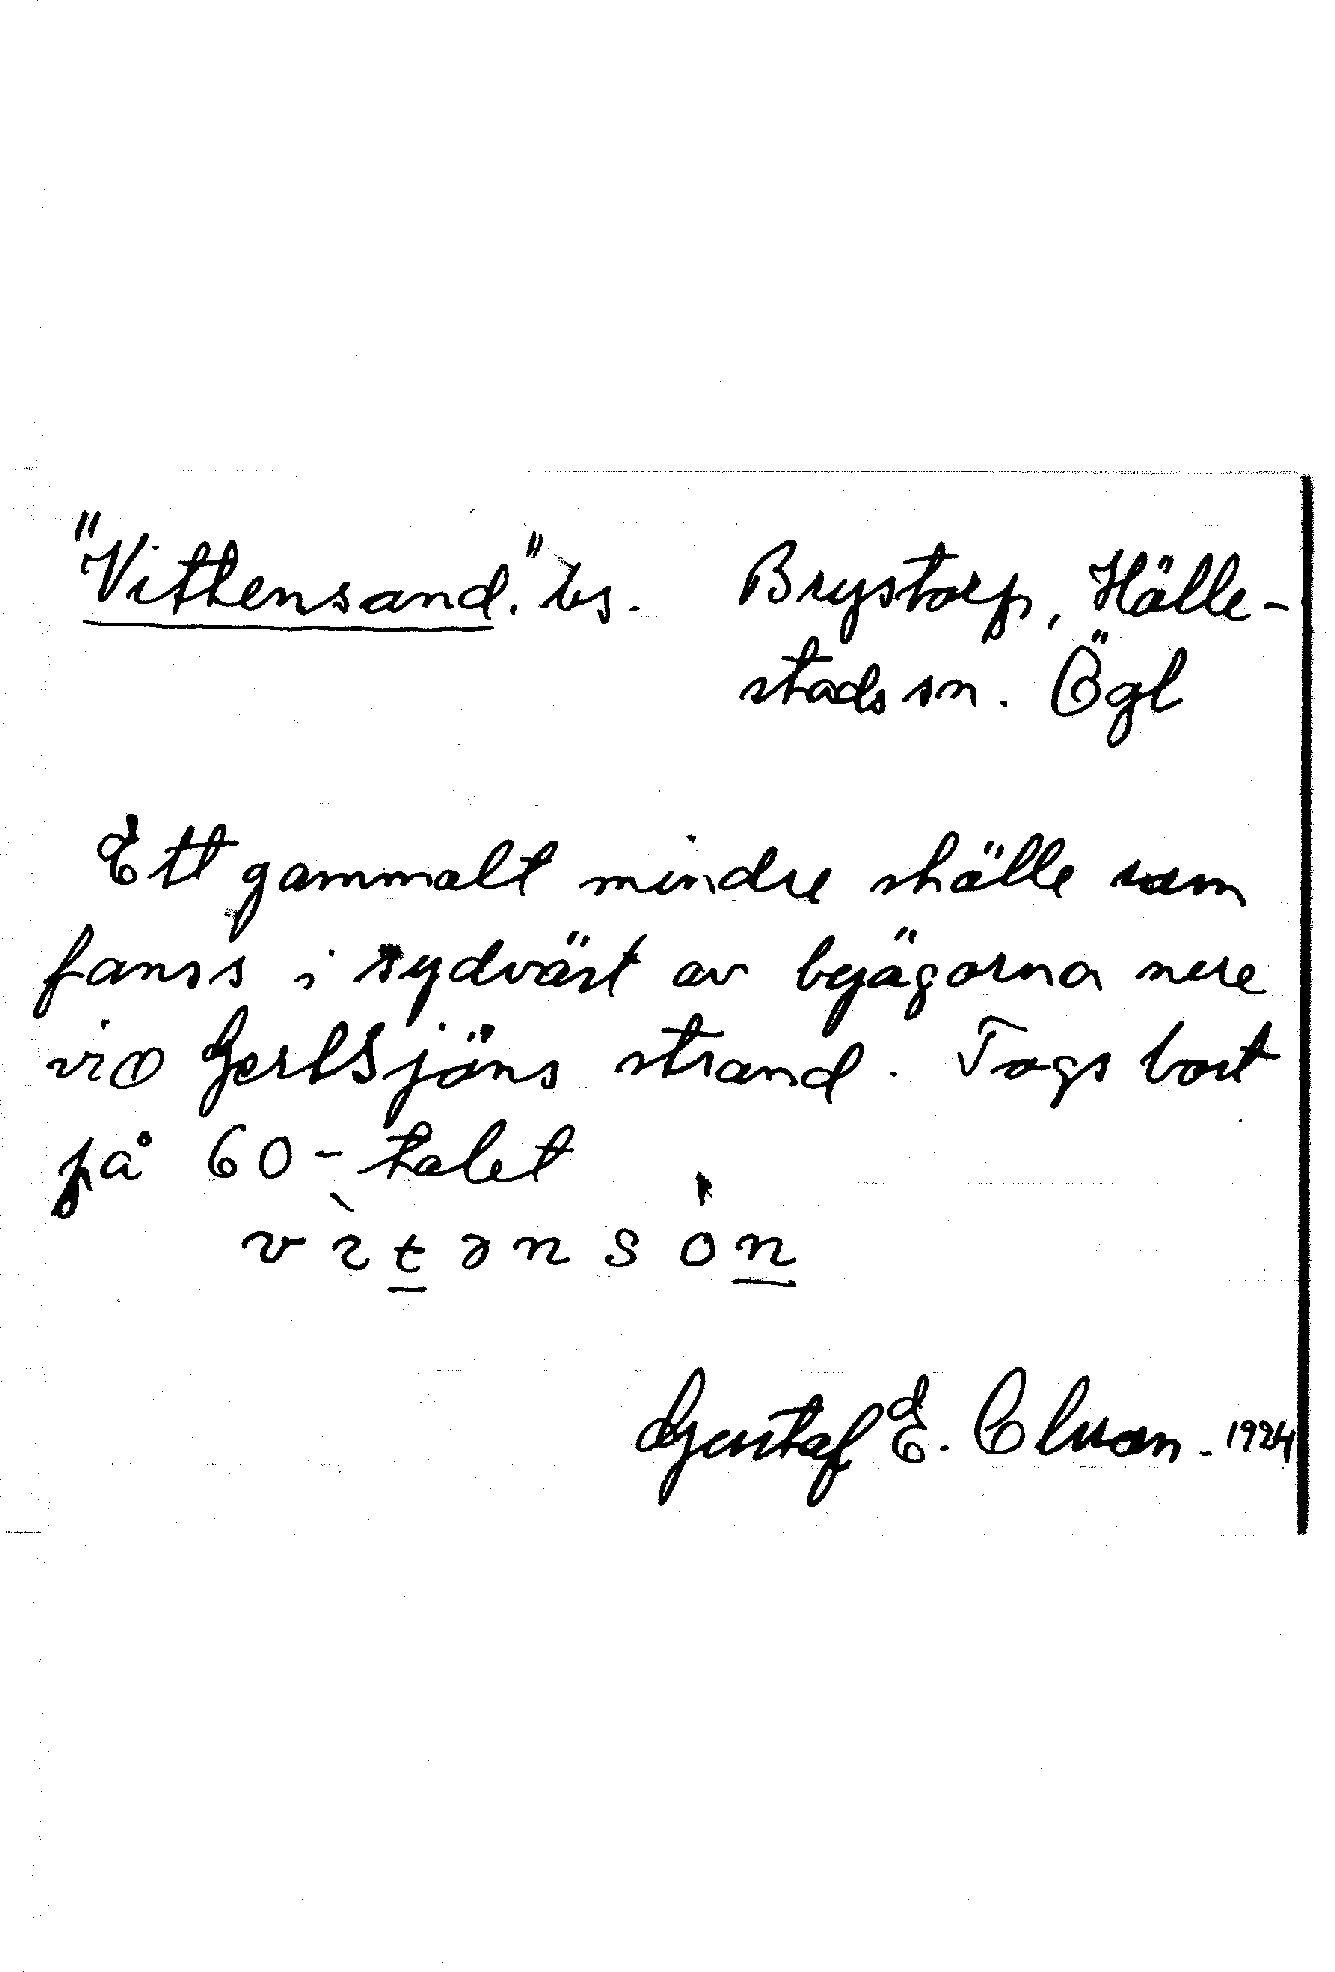 "Vittensand." bs. Brystorp, Hälle-
stads sn. Ögl
Ett gammalt mindre ställe som
fanss i sydväst av byägorna nere
vid Gerlsjöns strand. Togs bort
på 60-talet
vìtənsòn
Gustaf E. Clu 1924